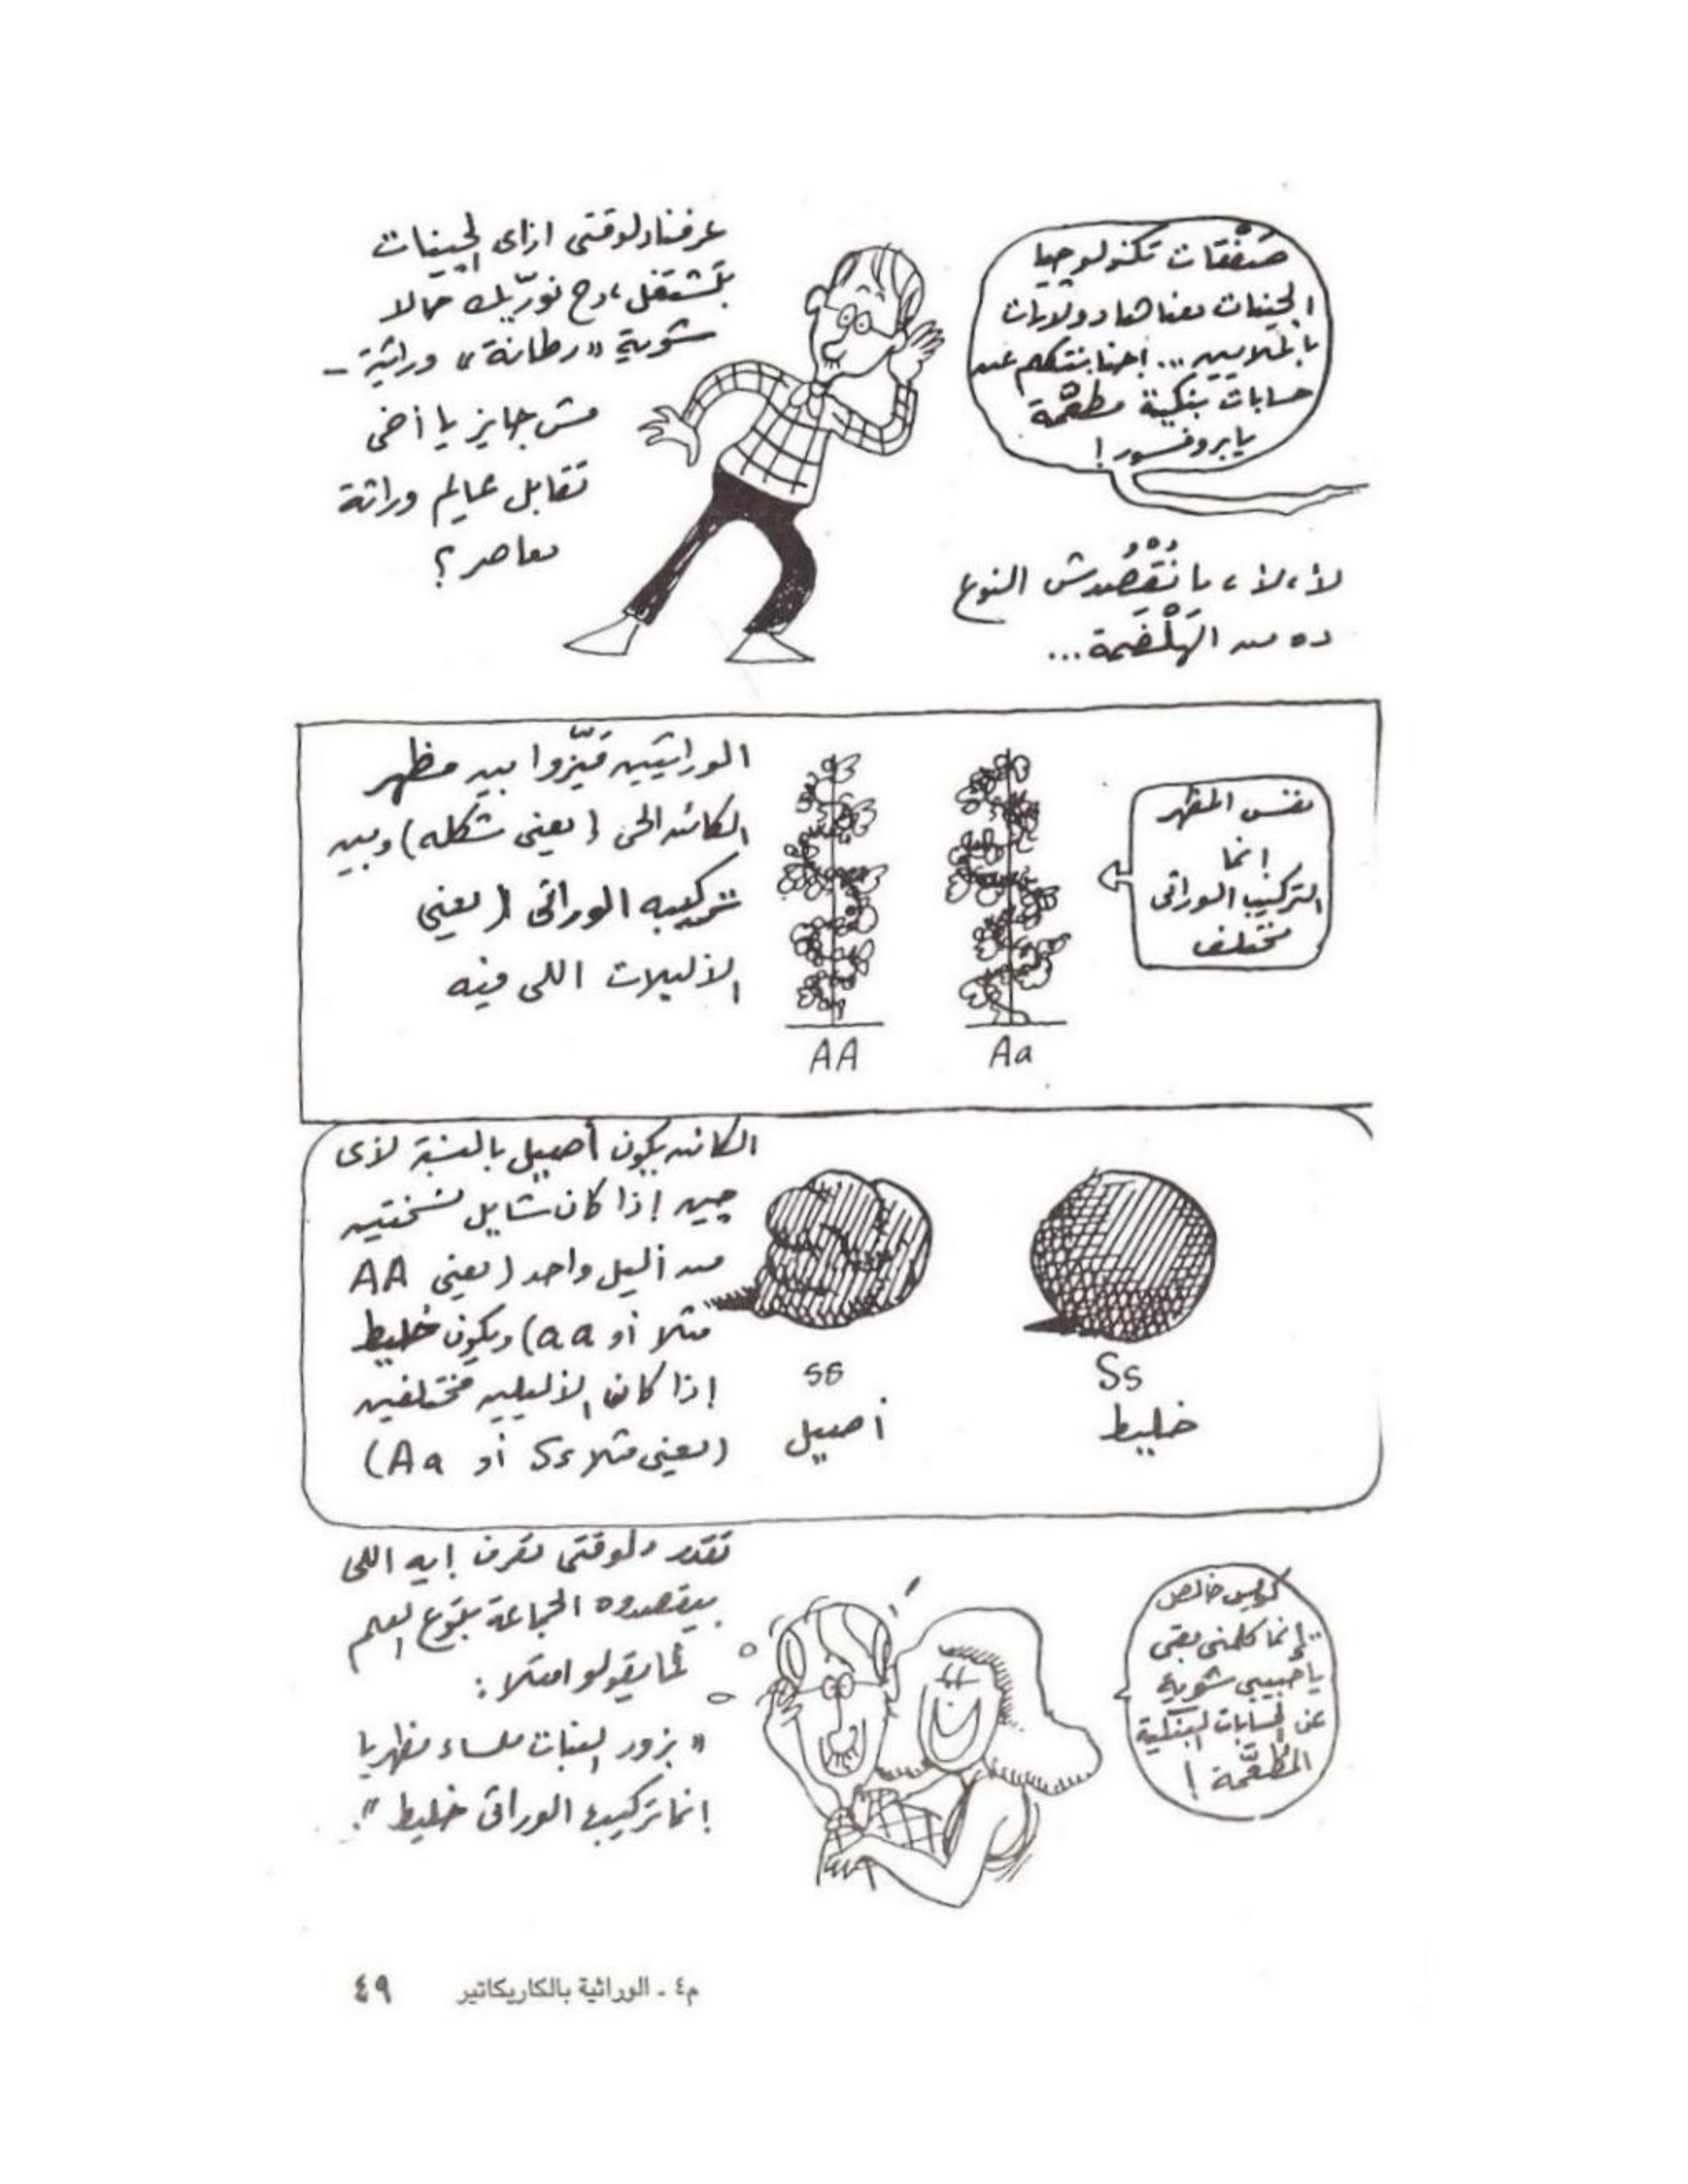 عرفنا دلوقتى ازاى الجينات
بتشتغل، وح نورّيك حالا
شوية «رطانة» وراثية -
مش جايز يا أخى
تقابل عالم وراثة
معاصر؟
صَفْقات تكنولوجيا
الجينات معناها دولارات
بالملايين... احنا بنتكلم عن
حسابات بنكية مطعّمة
يا بروفسور!
لأ، لأ، ما نُقْصُدش النوع
ده من الهَلْضَمة...
الوراثيين ميّزوا بين مظهر
الكائن الحى (يعنى شكله) وبين
تركيبه الوراثى (يعنى
الأليلات اللى فيه
AA
Aa
نفس المظهر
إنما
التركيب الوراثى
مختلف
الكائن يكون أصيل بالنسبة لأى
چين إذا كان شايل نسختين
من أليل واحد (يعنى AA
مثلا أو aa) ويكون خليط
إذا كان الأليلين مختلفين
(يعنى مثلا Ss أو Aa)
ss
أصيل
Ss
خليط
تقدر دلوقتى تعرف إيه اللى
بيقصدوه الجماعة بتوع العلم
لما يقولوا مثلا:
«بزور النبات ملساء مظهريا
إنما تركيبها الوراثى خليط».
كويس خالص
.. إنما كلمنى بقى
يا حبيبى شوية
عن الحسابات البنكية
المطعّمة!
م٤ - الوراثية بالكاريكاتير ٤٩